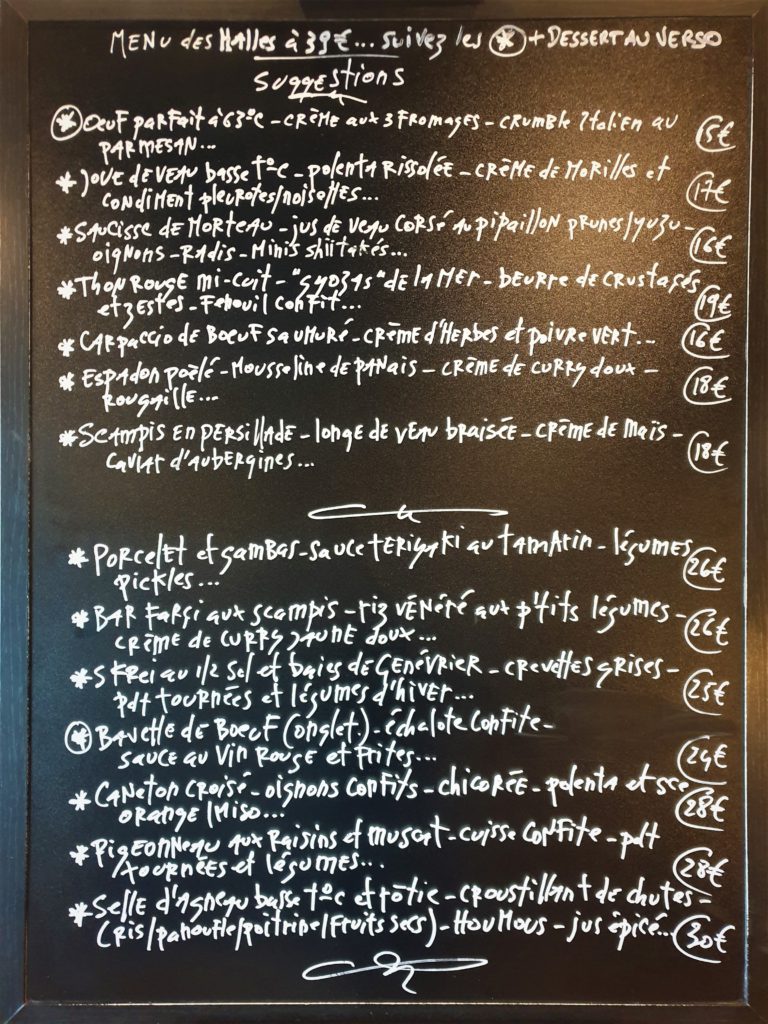 MENU des Halles à 39€... suivez les * + DESSERT AU VERSO
Suggestions
* Œuf parfait à 63°C - crème aux 3 fromages - crumble italien au
parmesan... 15€
* Joue de veau basse t°c - polenta rissolée - crème de morilles et
condiment pleurotes/noisettes... 17€
* Saucisse de Morteau - jus de veau corsé au pipaillon prunes/yuzu -
oignons - radis - minis shiitakés... 16€
* Thon rouge mi-cuit - "gyozas" de la mer - beurre de crustacés
et zestes - fenouil confit... 19€
* Carpaccio de bœuf saumuré - crème d'herbes et poivre vert... 16€
* Espadon poêlé - mousseline de panais - crème de curry doux -
rougaille... 18€
* Scampis en persillade - longe de veau braisée - crème de maïs -
caviar d'aubergines... 18€
* Porcelet et gambas - sauce teriyaki au tamarin - légumes
pickles... 26€
* Bar farçi aux scampis - riz vénéré aux p'tits légumes -
crème de curry jaune doux... 26€
* Skrei au 1/2 sel et baies de genévrier - crevettes grises -
pdt tournées et légumes d'hiver... 25€
* Bavette de bœuf (onglet) - échalote confite -
sauce au vin rouge et frites... 24€
* Caneton croisé - oignons confits - chicorée - polenta et sce
orange/miso... 28€
* Pigeonneau aux raisins et muscat - cuisse confite - pdt
tournées et légumes... 28€
* Selle d'agneau basse t°c et rôtie - croustillant de chutes -
(ris/panoufle/poitrine/fruits secs) - houmous - jus épicé... 30€